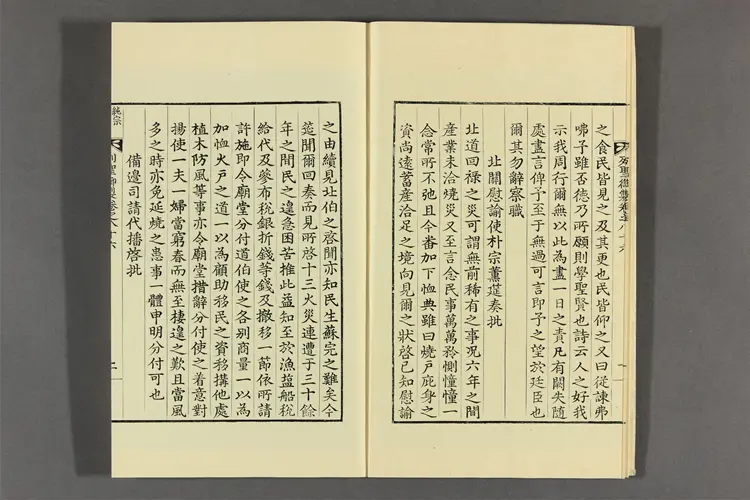 之食民皆見之及其更也民皆仰之又曰從諫弗
咈子雖否德乃所願則學聖賢也詩云人之好我
示我周行爾無以此為盡一日之責凡有闕失随
處盡言俾予至于無過可言即予之望於廷臣也
爾其勿辭察職
北關慰諭使朴宗薰筵奏批
北道回祿之災可謂無前稀有之事況六年之間
産業未洽燒災又至言念民事萬萬矜惻憧憧一
念常所不弛且今番加下恤典雖曰燒戶庇身之
資尚遠蓄產洽足之境向見爾之狀啓已知慰諭
之由續見北伯之啓聞亦知民生蘇完之難矣今
筵聞爾回奏而見所啓十三火災連遭于三十餘
年之間民之遑急困苦推此益知至於漁鹽船稅
給代及蔘布稅銀折錢等錢及撤移一節依所請
許施即令廟堂分付道伯使之各别商量一以為
加恤火戶之道一以為顧助移民之資移搆他處
植木防風等事亦令廟堂措辭分付使之着意對
揚使一夫一婦當窮春而無至棲遑之歎且當風
多之時亦免延燒之患事一體申明分付可也
備邊司請代播啓批
純宗
列聖御製卷之八十六
二